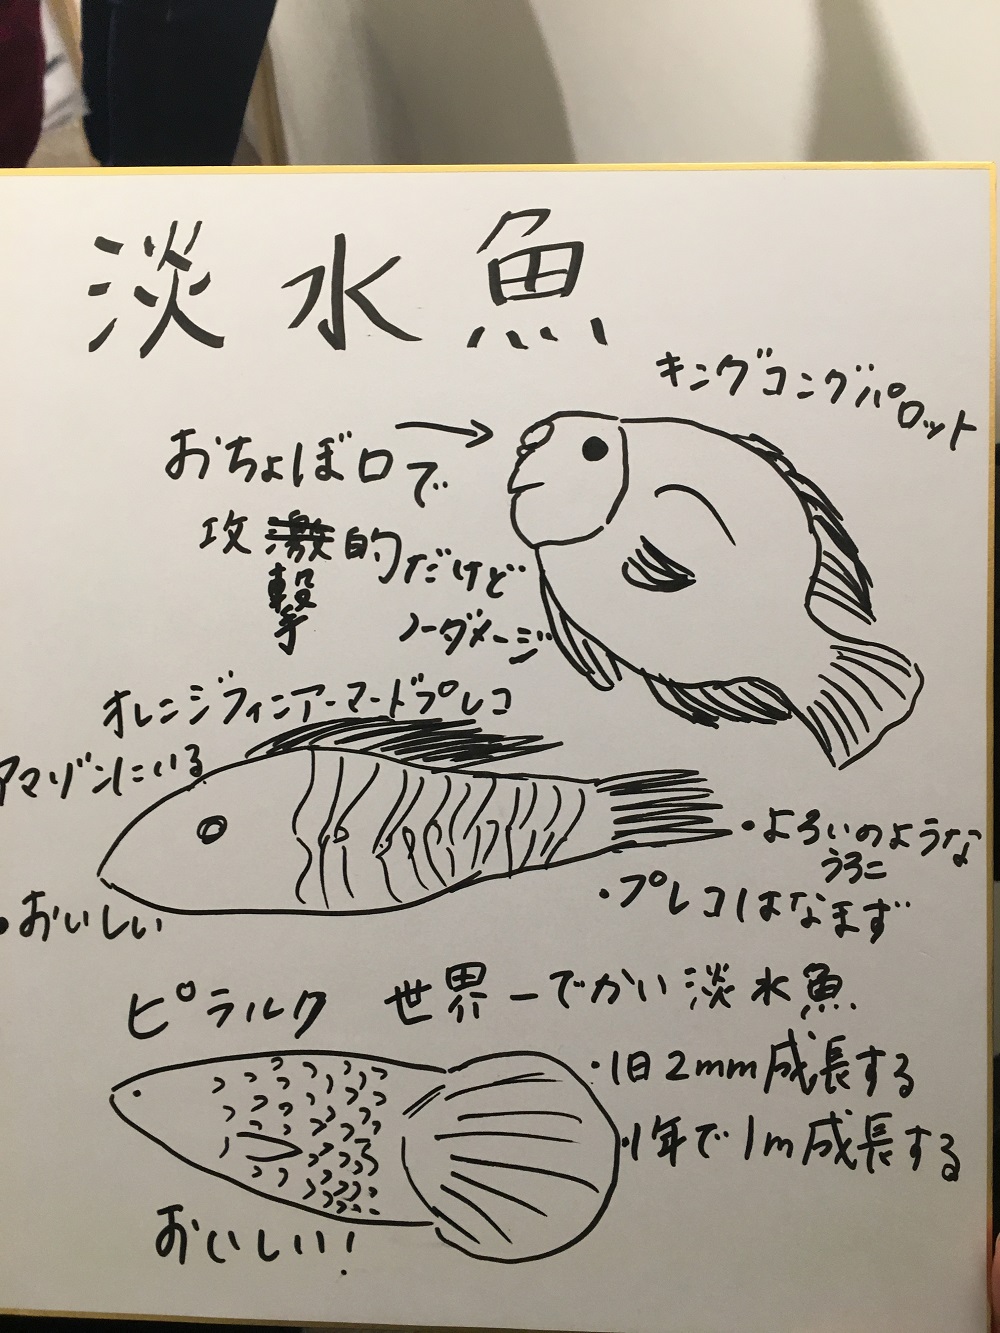 淡水魚
キングコングパロット
おちょぼ口で
攻撃的だけど
ノーダメージ
オレンジフィンアーマードプレコ
アマゾンにいる
・よろいのような
うろこ
・プレコはなまず
・おいしい
ピラルク 世界一でかい淡水魚
・1日2mm成長する
・1年で1m成長する
おいしい!